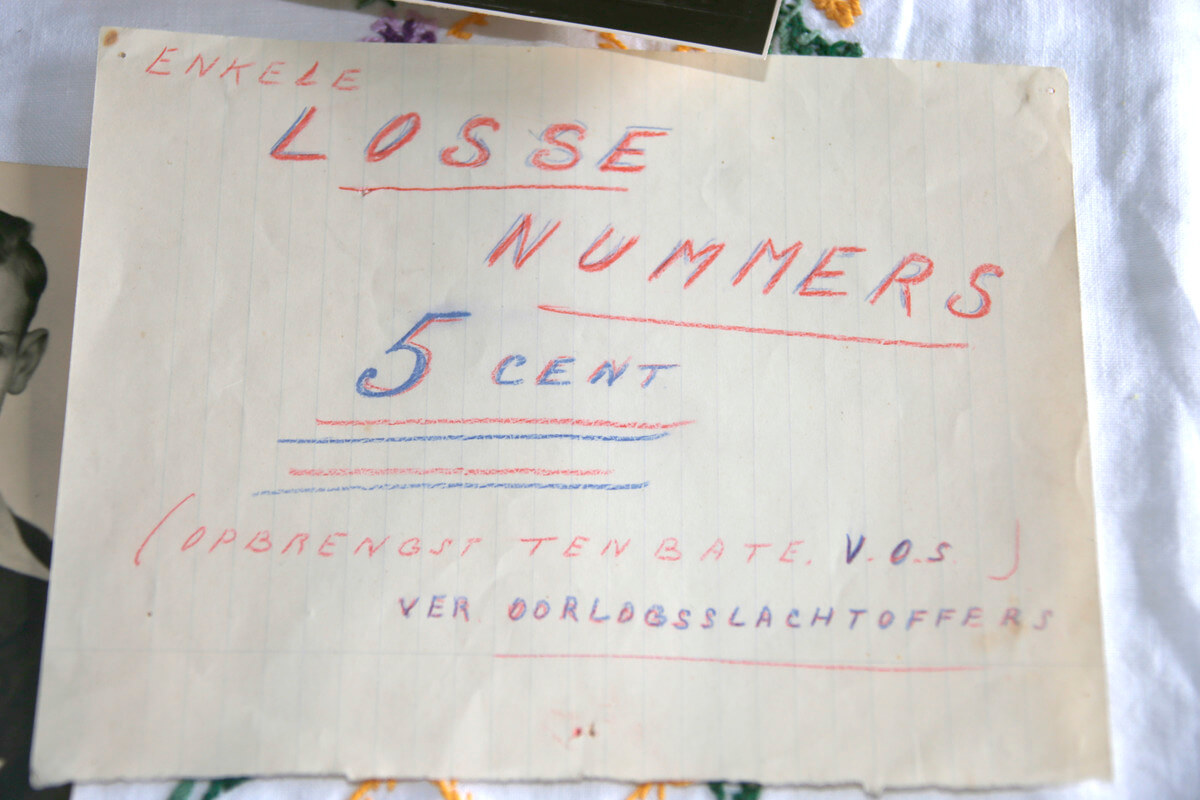 ENKELE
LOSSE
NUMMERS
5 CENT
(OPBRENGST TEN BATE. V.O.S )
VER OORLOGSSLACHTOFFERS